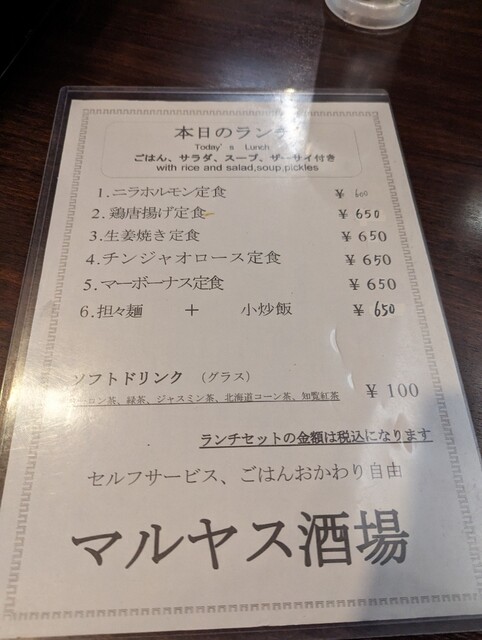 本日のランチ
Today's Lunch
ごはん、サラダ、スープ、ザーサイ付き
with rice and salad,soup,pickles
1.ニラホルモン定食 ¥ 600
2.鶏唐揚げ定食 ¥ 650
3.生姜焼き定食 ¥ 650
4.チンジャオロース定食 ¥ 650
5.マーボーナス定食 ¥ 650
6.担々麺 + 小炒飯 ¥ 650
ソフトドリンク (グラス) ¥ 100
ウーロン茶、緑茶、ジャスミン茶、北海道コーン茶、知覧紅茶
ランチセットの金額は税込になります
セルフサービス、ごはんおかわり自由
マルヤス酒場